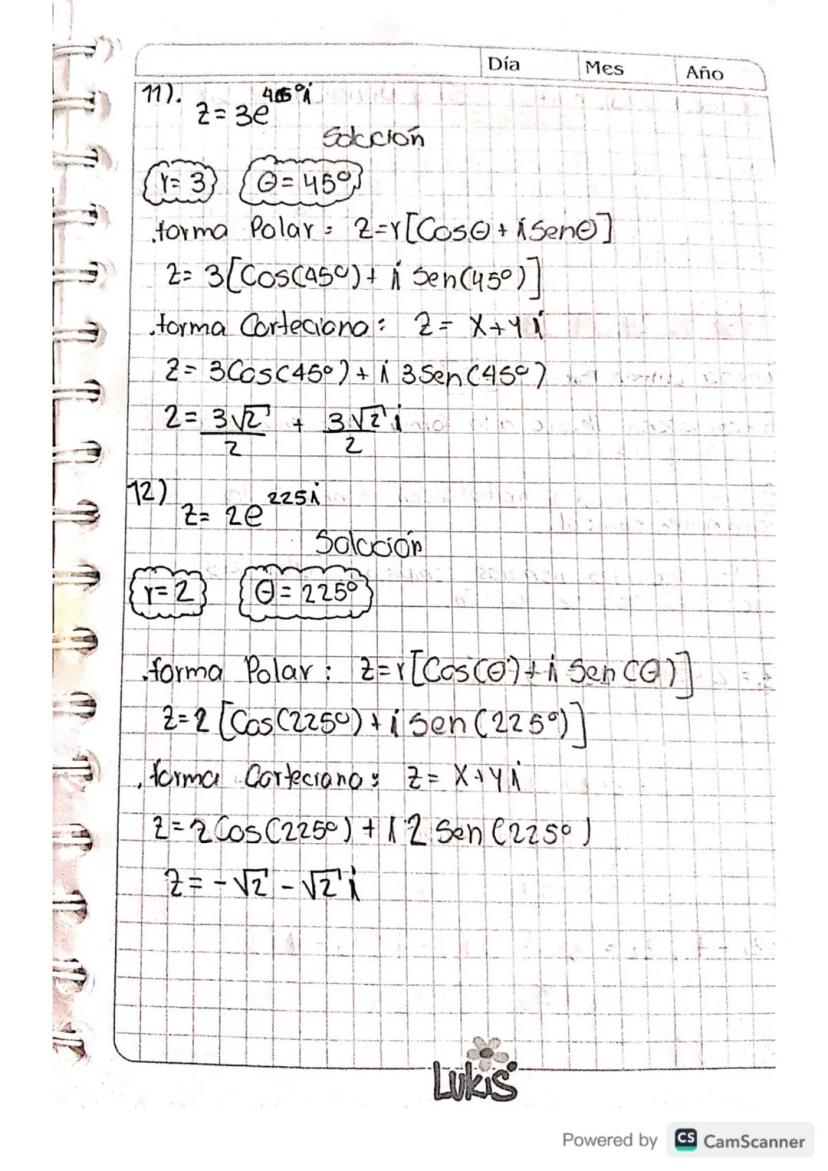 Día Mes Año
11). z = 3e^45°i
Solución
r = 3 θ = 45°
.forma Polar: z = r[Cosθ + i Senθ]
z = 3[Cos(45°) + i Sen(45°)]
.forma Carteciana: z = x + y i
z = 3Cos(45°) + i 3Sen(45°)
z = 3√2/2 + 3√2/2 i
12) z = 2e^225i
Solución
r = 2 θ = 225°
.forma Polar: z = r[Cos(θ) + i Sen(θ)]
z = 2[Cos(225°) + i Sen(225°)]
.forma Carteciana: z = x + y i
z = 2Cos(225°) + i 2 Sen(225°)
z = -√2 - √2 i
Lukis
Powered by CS CamScanner